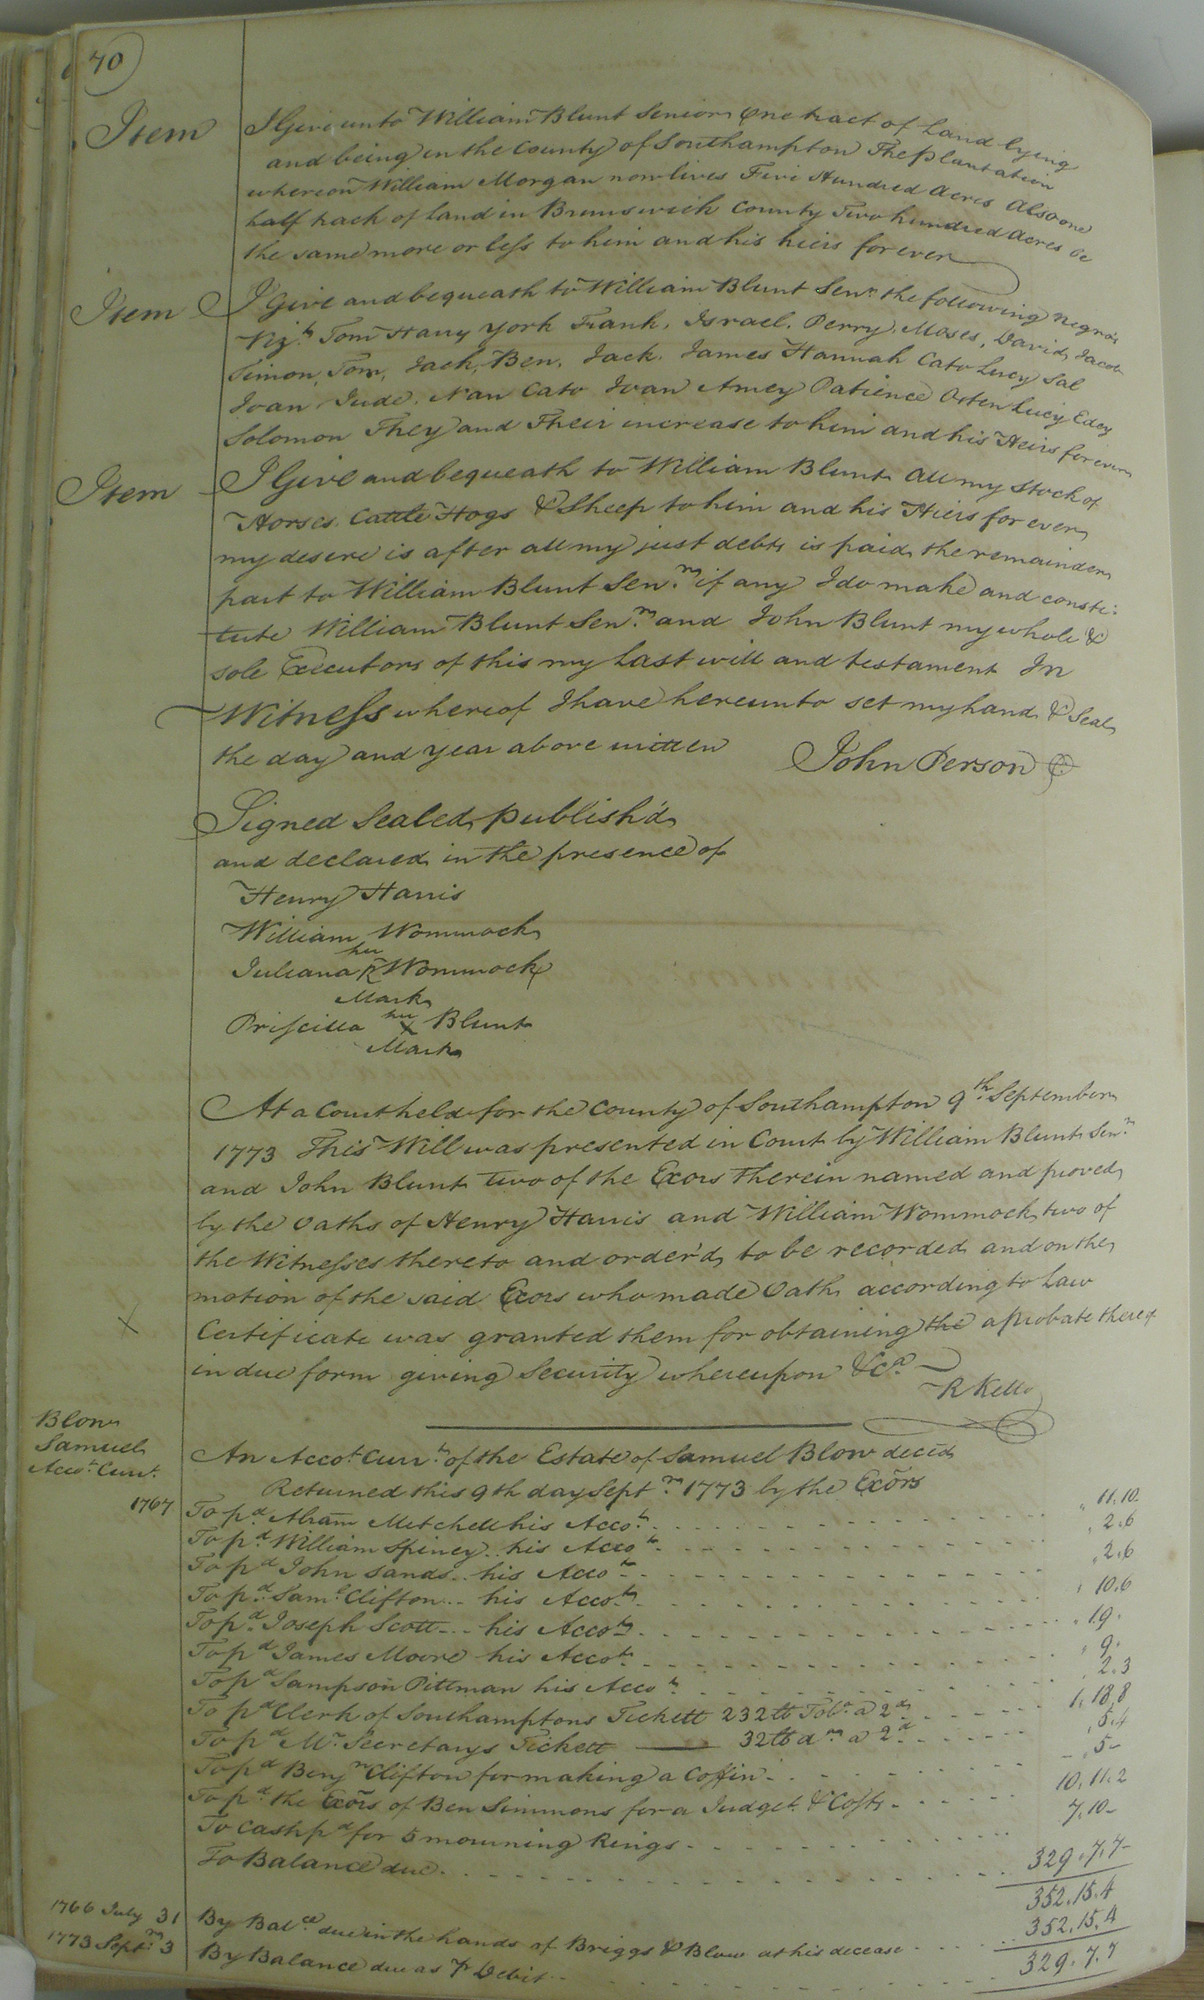 70
Item I Give unto William Blunt Senior One tract of Land lying
and being in the County of Southampton The plantation
whereon William Morgan now lives Five Hundred Acres Also one
half track of land in Brunswick County Two hundred Acres be
the same more or less to him and his heirs forever
Item I Give and bequeath to William Blunt Senr the following negroes
Vizt Tom Harry York Frank, Israel, Perry, Moses, David, Jacob
Simon, Tom, Jack, Ben, Jack, James Hannah Cato Lucy Sal
Joan Jude, Nan Cato Joan Amey Patience Osten Lucy Edey
Solomon They and Their increase to him and his Heirs forever
Item I Give and bequeath to William Blunt All my Stock of
Horses Cattle Hogs & Sheep to him and his Heirs for ever
my desire is after all my just debts is paid the remainder
part to William Blunt Senr. if any I do make and consti:
tute William Blunt Senr. and John Blunt my whole &
sole Executors of this my Last will and testament In
Witness whereof I have hereunto set my hand & Seal
the day and year above written John Person
Signed Sealed, publish'd
and declared in the presence of
Henry Harris
William Wommock
her
Juliana K Wommock
Mark
her
Priscilla X Blunt
Mark
At a Court held for the County of Southampton 9th September
1773 This Will was presented in Court by William Blunt Senr.
and John Blunt two of the Exors Therein named and proved
by the Oaths of Henry Harris and William Wommock two of
the Witnesses thereto and order'd to be recorded and on the
motion of the said Exors who made Oath according to Law
X Certificate was granted them for obtaining the a probate thereof
in due form giving Security whereupon &ca.
R Kello
Blow
Samuel
Accot. Curt.
An Accot. Currt. of the Estate of Samuel Blow decd
Returned this 9th day Septr 1773 by the Exors
1767 To pd. Abram Mitchell his Accot. 11.10-
To pd. William Spiney his Accot. 2.6
To pd John Sands his Accot. 2.6
To pd. Saml. Clifton his Accot. 10.6
To pd. Joseph Scott his Accot. 19.
To pd James Moore his Accot. 9.
To pd Sampson Pittman his Accot. 2.3
To pd Clerk of Southamptons Tickett 232 lb Tobo. a 2d 1.18.8
To pd Mr. Secretarys Tickett 32 lb do a 2d 5.4
To pd Benjn Clifton for making a Coffin 5-
To pd. the Exors of Ben Simmons for a Judget. & Costs 10.11.2
To Cash pd for 5 mourning Rings 7.10-
To Balance due 329.7.7
352.15.4
1766 July 31 By Balce. due in the hands of Briggs & Blow at his decease 352.15.4
1773 Septr. 3 By Balance due as Pr Debit 329.7.7